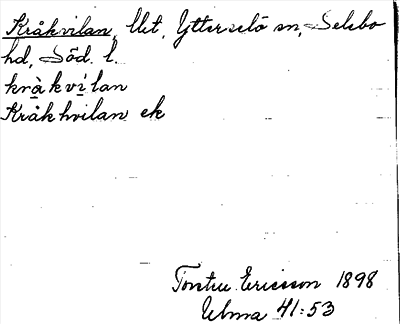 Kråkvilan, Ut, Ytterselö sn, Selebo
hd, Söd. l.
kràkvílan
Kråkhvilan ek
Torsten Ericsson 1898
Ulma 41:53